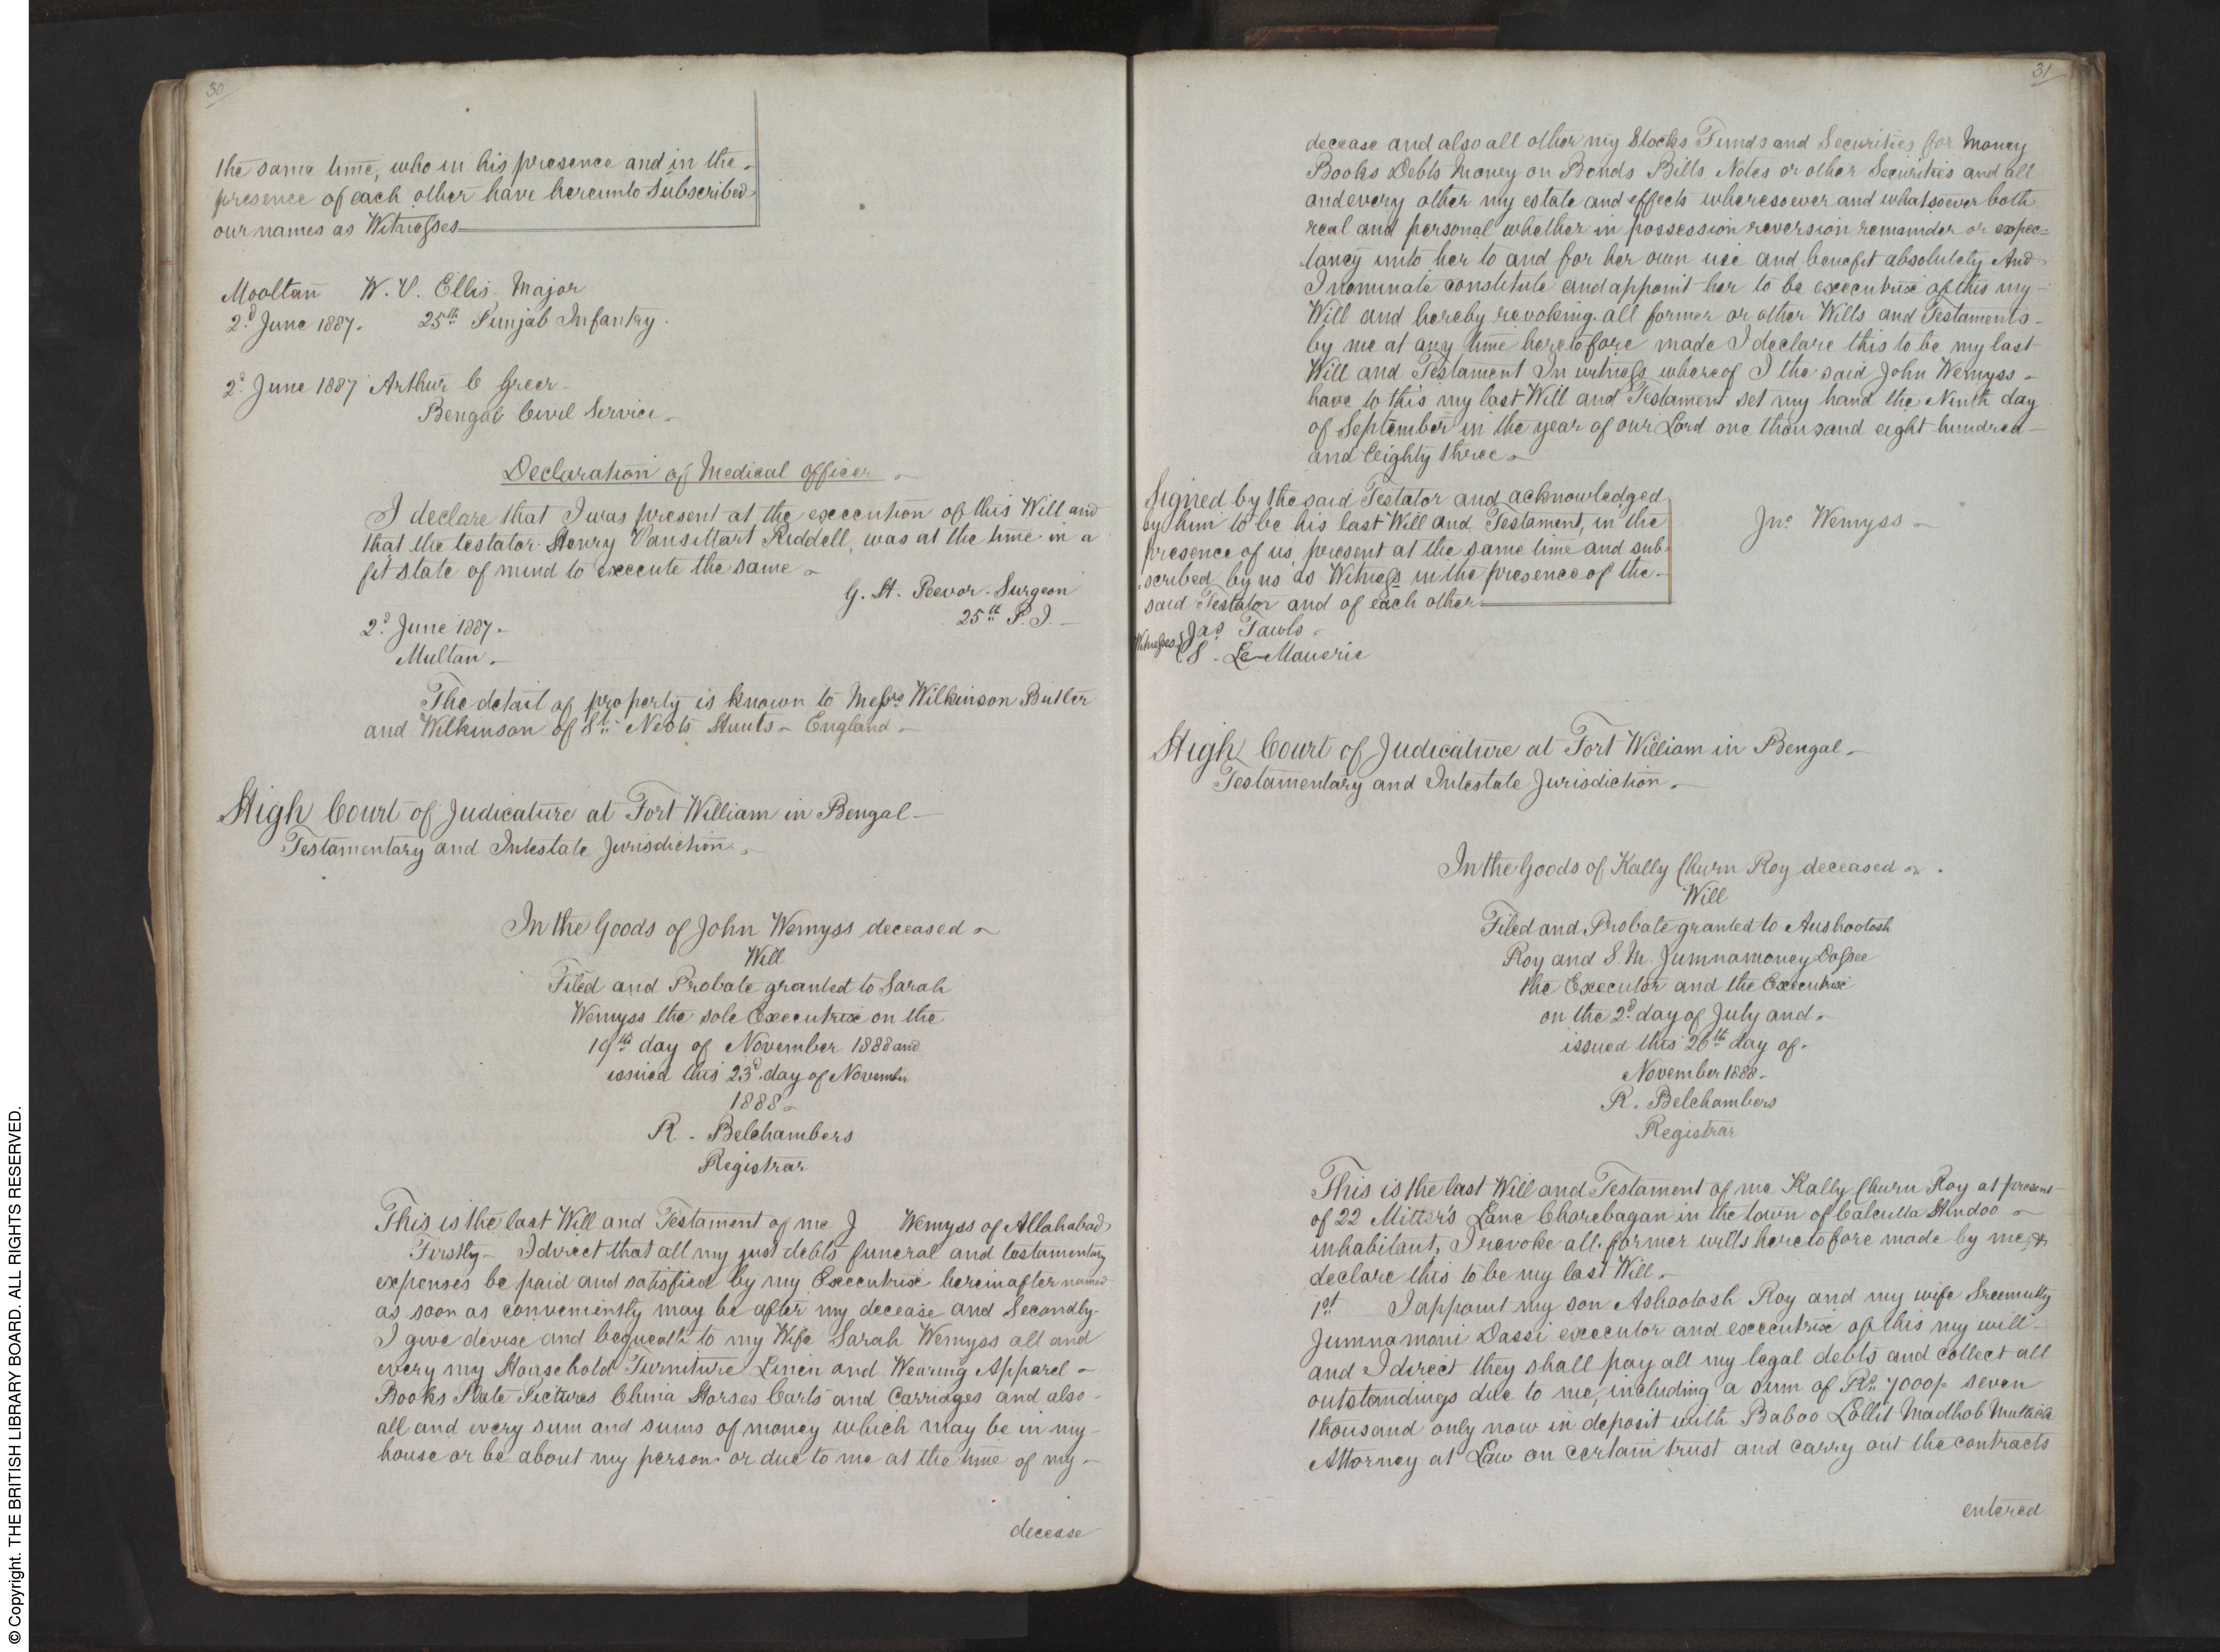 30
the same time, who in his presence and in the
presence of each other have hereunto Subscribed
our names as Witnesses
Mooltan W. V. Ellis Major
2d June 1887. 25th Punjab Infantry.
2d June 1887 Arthur C Greer
Bengal Civil Service
Declaration of Medical Officer
I declare that I was present at the execution of this Will and
that the testator Henry Vansittart Riddell, was at the time in a
fit state of mind to execute the same
G. H. Peevor. Surgeon
25th P.I.
2d June 1887.
Multan.
The detail of property is known to Messrs Wilkinson Butler
and Wilkinson of St Neots Hunts England
High Court of Judicature at Fort William in Bengal
Testamentary and Intestate Jurisdiction.
In the Goods of John Wemyss deceased
Will
Filed and Probate granted to Sarah
Wemyss the sole Executrix on the
19th day of November 1888 and
issued this 23d day of November
1888
R. Belchambers
Registrar
This is the last Will and Testament of me J Wemyss of Allahabad
Firstly I direct that all my just debts funeral and testamentary
expenses be paid and satisfied by my Executrix hereinafter named
as soon as conveniently may be after my decease and Secondly
I give devise and bequeath to my Wife Sarah Wemyss all and
every my Household Furniture Linen and Wearing Apparel
Books Plate Pictures China Horses Carts and Carriages and also
all and every sum and sums of money which may be in my
house or be about my person or due to me at the time of my
decease
31
decease and also all other my Stocks Funds and Securities for Money
Books Debts Money on Bonds Bills Notes or other Securities and all
and every other my estate and effects wheresoever and whatsoever both
real and personal whether in possession reversion remainder or expec=
tancy unto her to and for her own use and benefit absolutely And
I nominate constitute and appoint her to be executrix of this my
Will and hereby revoking all former or other Wills and Testaments
by me at any time heretofore made I declare this to be my last
Will and Testament In witness whereof I the said John Wemyss
have to this my last Will and Testament set my hand the Ninth day
of September in the year of our Lord one thousand eight hundred
and Eighty three
Signed by the said Testator and acknowledged
by him to be his last Will and Testament, in the
presence of us, present at the same time and sub-
scribed by us as Witness in the presence of the
said Testator and of each other
Jno. Wemyss
Witnesses { Jas Fawls
S. Le Maueric
High Court of Judicature at Fort William in Bengal
Testamentary and Intestate Jurisdiction.
In the Goods of Kally Churn Roy deceased
Will
Filed and Probate granted to Aushootosh
Roy and S. M. Jumnamoney Dossee
the Executor and the Executrix
on the 2d day of July and
issued this 26th day of
November 1888
R. Belchambers
Registrar
This is the last Will and Testament of me Kally Churn Roy at present
of 22 Mitter's Lane Chorebagan in the town of Calcutta Hindoo
inhabitant, I revoke all former wills heretofore made by me, &
declare this to be my last Will
1st I appoint my son Ashootosh Roy and my wife Sreemutty
Jumnamoni Dassi executor and executrix of this my will
and I direct they shall pay all my legal debts and collect all
outstandings due to me, including a sum of Rs 7000/- seven
thousand only now in deposit with Baboo Lollit Madhob Mullick
Attorney at Law on certain trust and carry out the contracts
entered
© Copyright. THE BRITISH LIBRARY BOARD. ALL RIGHTS RESERVED.